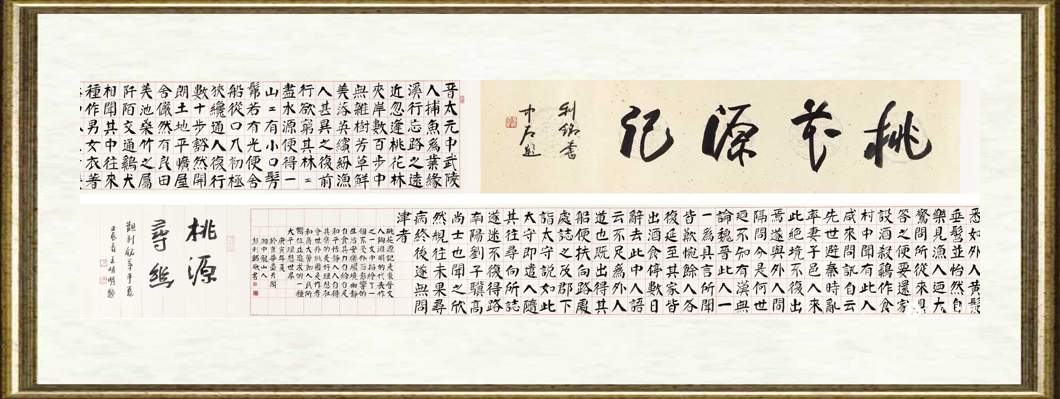 桃花源記
利銘書
中石題
晉太元中武陵
人捕魚爲業緣
溪行忘路之遠
近忽逢桃花林
夾岸數百步中
無雜樹芳草鮮
美落英繽紛漁
人甚異之復前
行欲窮其林=
盡水源便得一
山=有小口髣
髴若有光便舍
船從口入初極
狹纔通人復行
數十步豁然開
朗土地平曠屋
舍儼然有良田
美池桑竹之屬
阡陌交通鷄犬
相聞其中往來
種作男女衣著
悉如外人黃髮
垂髫並怡然自
樂見漁人迺大
驚問所從來具
答之便要還家
設酒殺鷄作食
村中聞有此人
咸來問訊自云
先世避秦時亂
率妻子邑人來
此絶境不復出
焉遂與外人間
隔問今是何世
迺不知有漢無
論魏晉此人一
一爲具言所聞
皆歎惋餘人各
復延至其家皆
出酒食停數日
辭去此中人語
云不足爲外人
道也既出得其
船便扶向路處
處誌之及郡下
詣太守說如此
太守即遣人隨
其往尋向所誌
遂迷不復得路
南陽劉子驥高
尚士也聞之欣
然規往未果尋
病終後遂無問
津者
桃源
尋蹤